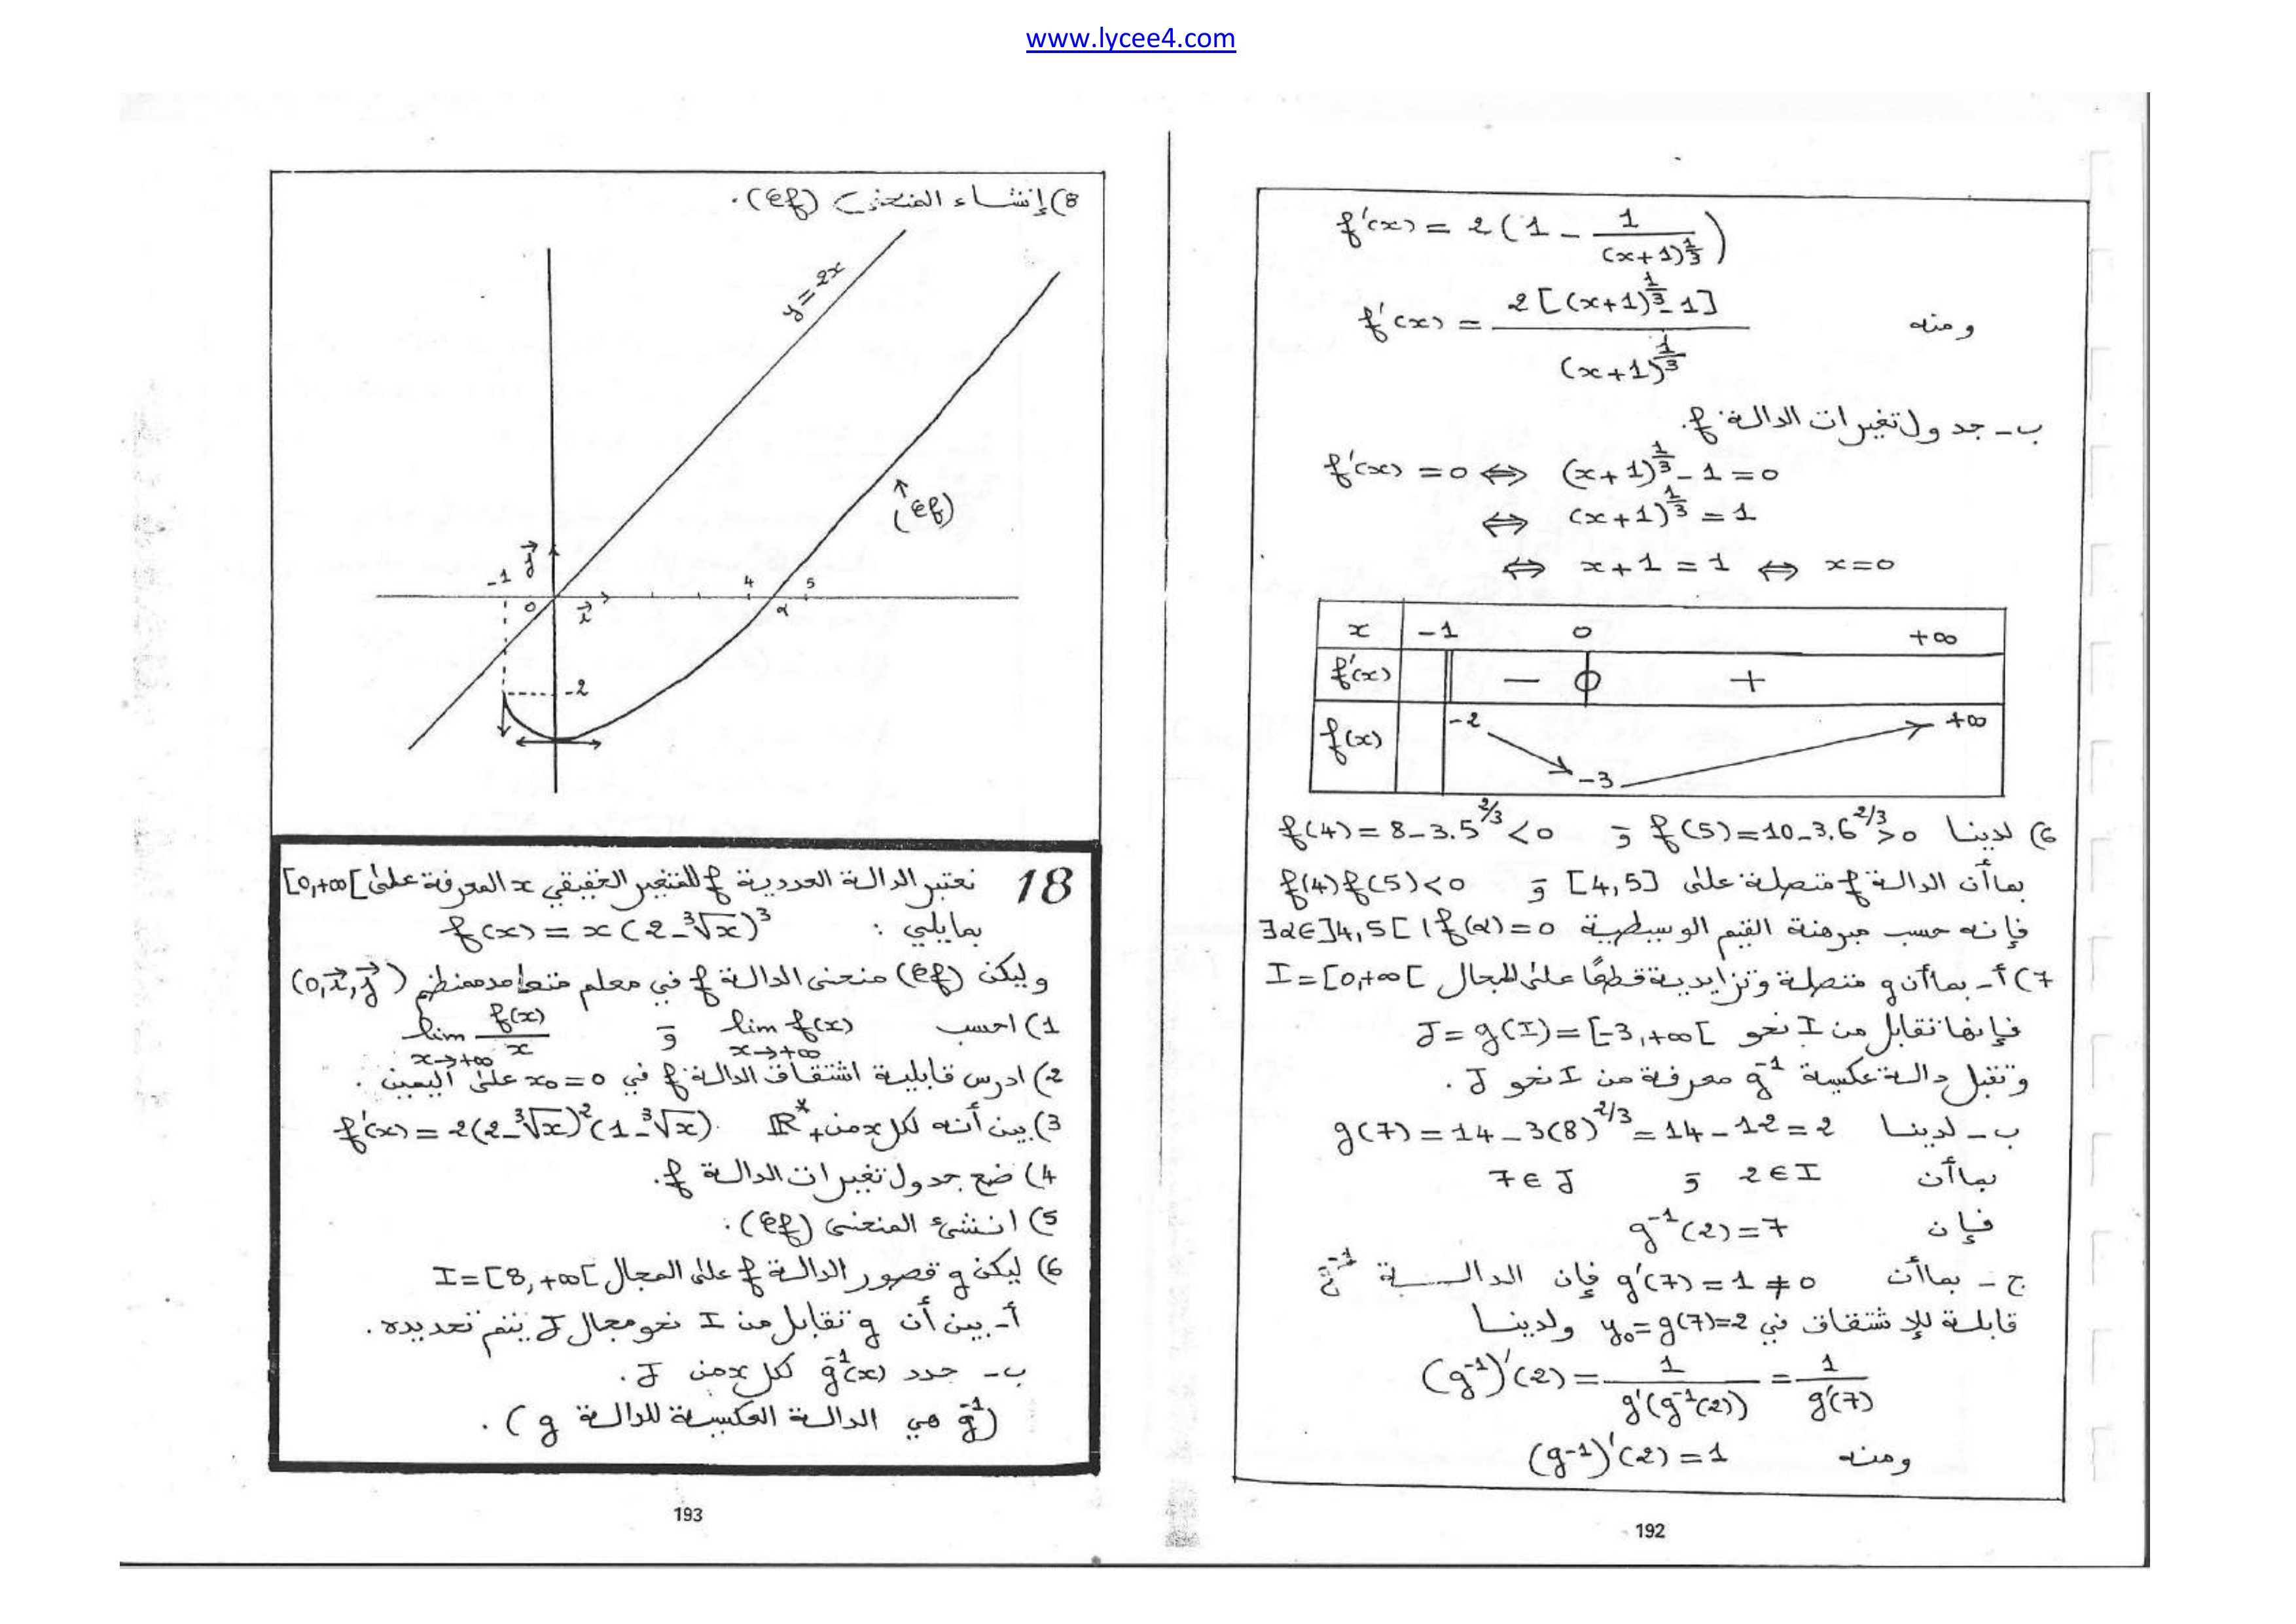 www.lycee4.com
f'(x) = 2(1 - 1/(x+1)^{1/3})
ومنه f'(x) = 2[(x+1)^{1/3} - 1]/(x+1)^{1/3}
ب - جدول تغيرات الدالة f.
f'(x) = 0 ⇔ (x+1)^{1/3} - 1 = 0
⇔ (x+1)^{1/3} = 1
⇔ x+1 = 1 ⇔ x=0
x -1 0 +∞
f'(x) - 0 +
f(x) -2 -3 +∞
6) لدينا f(5) = 10-3.6^{2/3} > 0 و f(4) = 8-3.5^{2/3} < 0
بما أن الدالة f متصلة على [4,5] و f(4)f(5)<0
فإنه حسب مبرهنة القيم الوسيطية ∃α∈]4,5[ / f(α)=0
7) أ- بما أن g متصلة وتزايدية قطعا على المجال I=[0,+∞[
فإنها تقابل من I نحو J = g(I) = [-3,+∞[
وتقبل دالة عكسية g^{-1} معرفة من I نحو J.
ب - لدينا g(7) = 14-3(8)^{2/3} = 14-12 = 2
بما أن 2∈I و 7∈J
فإن g^{-1}(2)=7
ج - بما أن g'(7) = 1 ≠ 0 فإن الدالة g^{-1}
قابلة للإشتقاق في y₀=g(7)=2 ولدينا
(g^{-1})'(2) = 1/g'(g^{-1}(2)) = 1/g'(7)
ومنه (g^{-1})'(2) = 1
192
8) إنشاء المنحنى (Cf).
y=2x
(Cf)
-1 j 4 5
0 i α
-2
18 نعتبر الدالة العددية f للمتغير الحقيقي x المعرفة على [0,+∞[
بمايلي : f(x) = x(2-∛x)³
وليكن (Cf) منحنى الدالة f في معلم متعامد ممنظم (0,i,j)
1) احسب lim f(x) x→+∞ و lim f(x)/x x→+∞
2) ادرس قابلية اشتقاق الدالة f في x₀=0 على اليمين.
3) بين أنه لكل x من ℝ*₊ f'(x) = 2(2-∛x)²(1-∛x).
4) ضع جدول تغيرات الدالة f.
5) انشئ المنحنى (Cf).
6) ليكن g قصور الدالة f على المجال I=[8,+∞[
أ- بين أن g تقابل من I نحو مجال J يتم تحديده.
ب - حدد g^{-1}(x) لكل x من J.
(g^{-1} هي الدالة العكسية للدالة g).
193